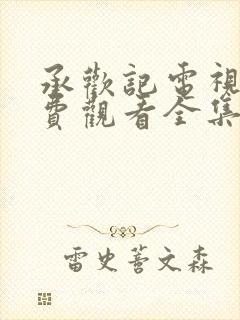 承歡記電視
費觀看全集
雷史萫文森